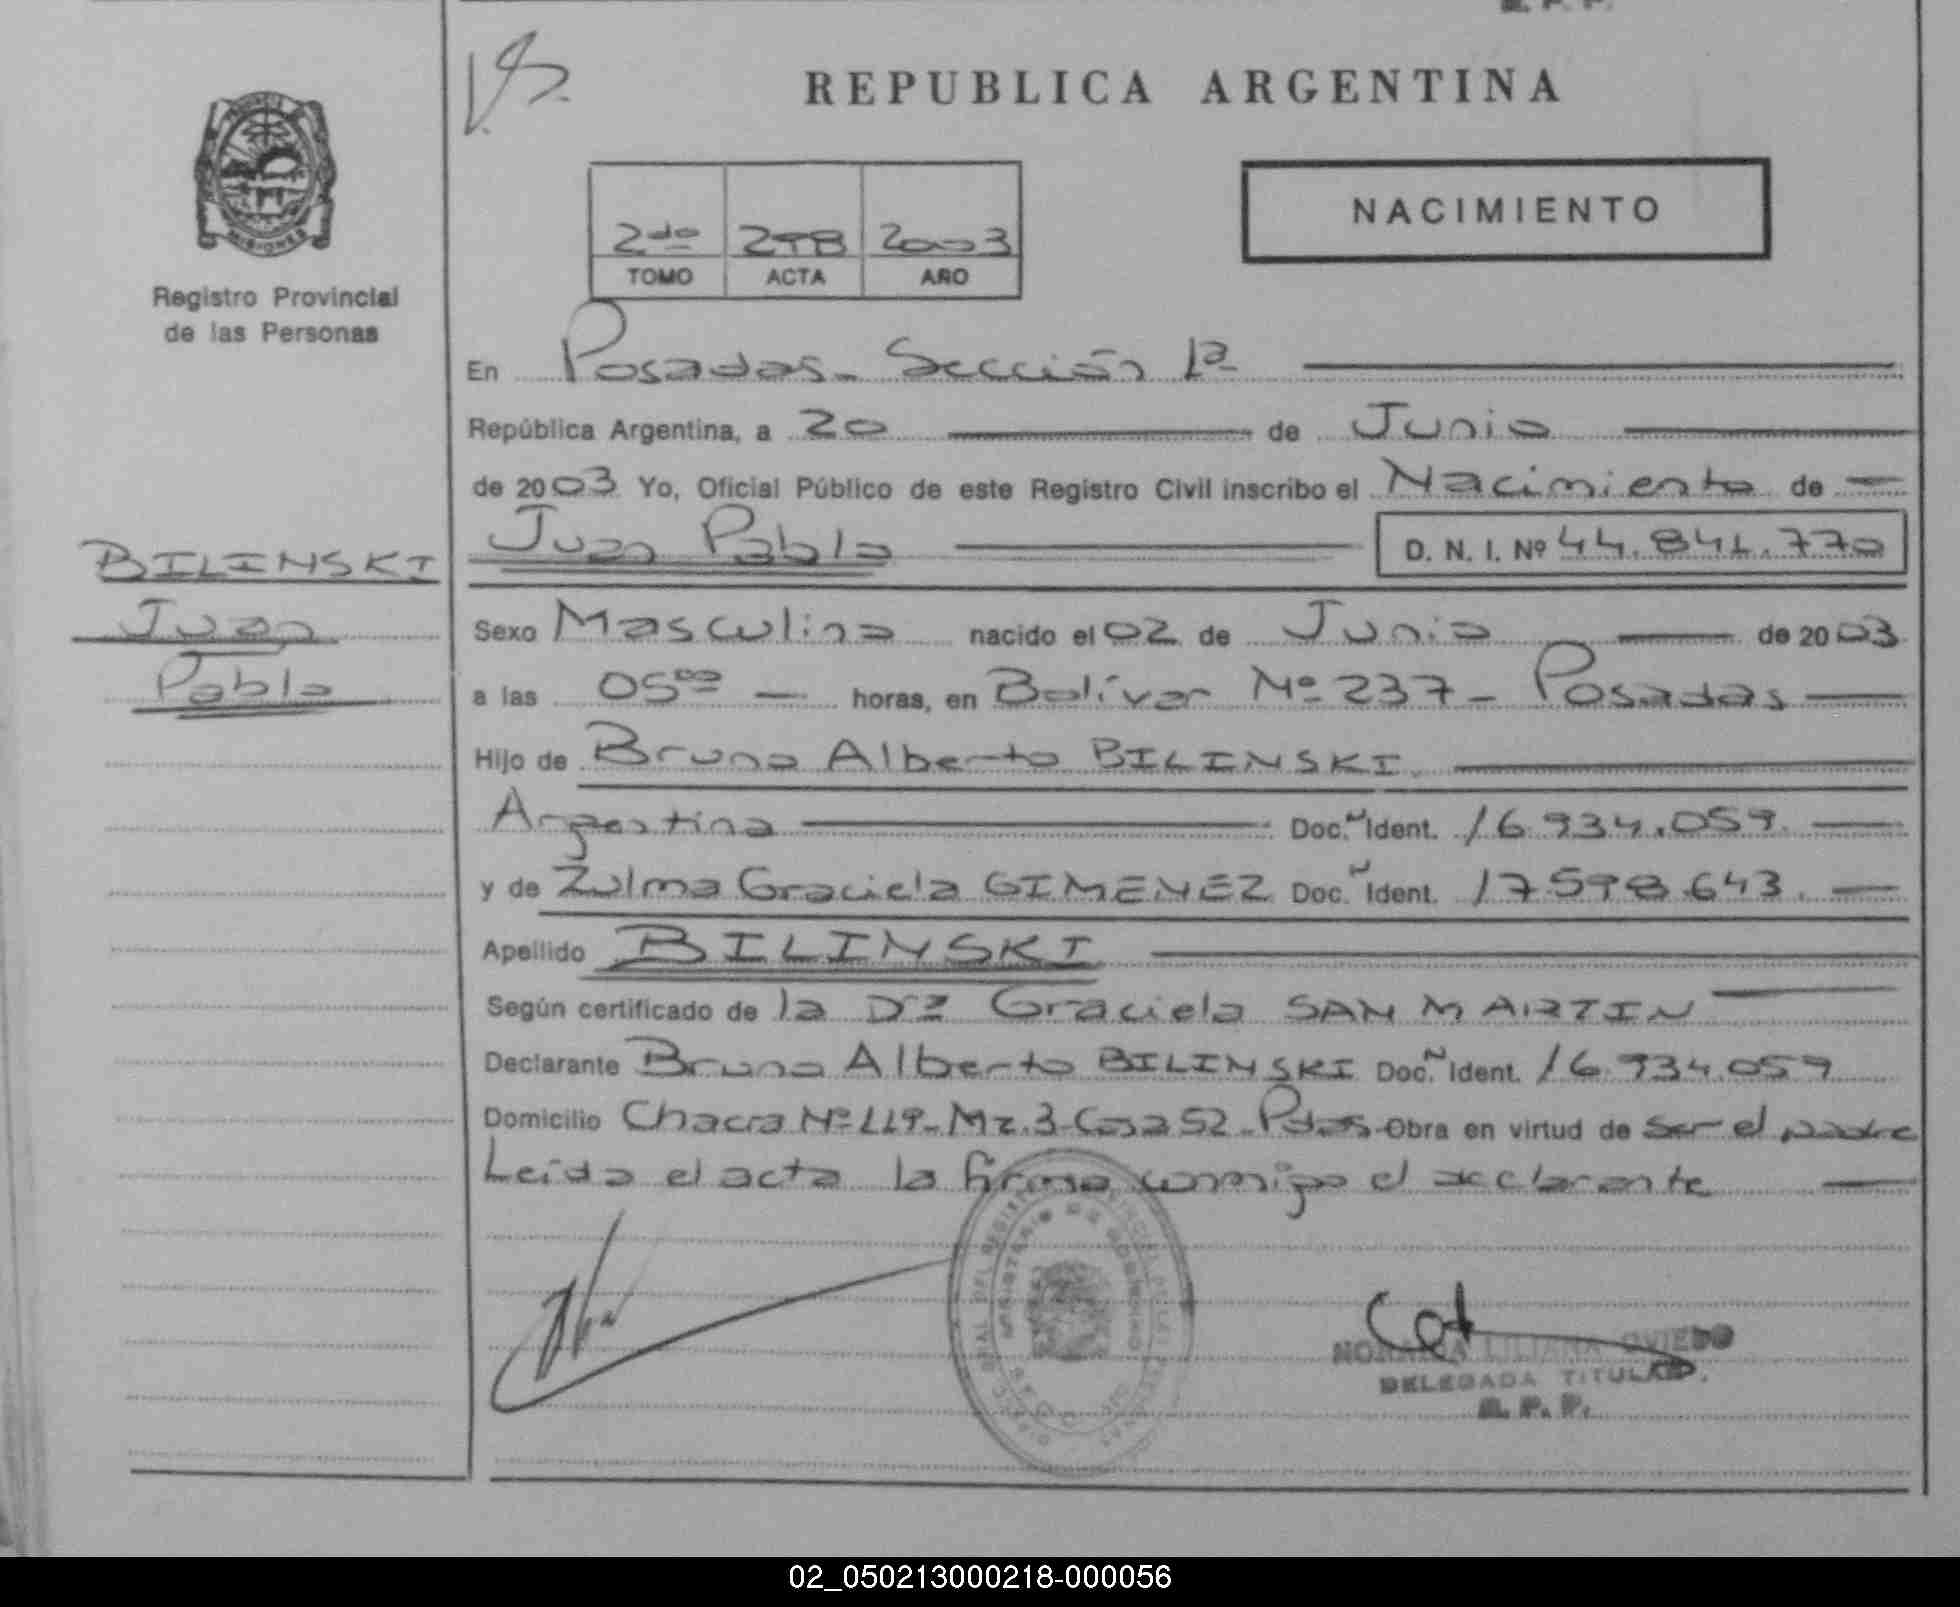 REPUBLICA ARGENTINA
MISIONES
Registro Provincial
de las Personas
2do 298 2003
TOMO ACTA AÑO
NACIMIENTO
En Posadas - Sección 1ª
República Argentina, a 20 de Junio
de 2003 Yo, Oficial Público de este Registro Civil inscribo el Nacimiento de
Juan Pablo D. N. I. Nº 44.841.770
BILINSKI
Juan
Pablo
Sexo Masculino nacido el 02 de Junio de 2003
a las 05 00 horas, en Bolívar Nº 237 - Posadas
Hijo de Bruno Alberto BILINSKI
Argentina Doc. N Ident. 16.934.059
y de Zulma Graciela GIMENEZ Doc. N Ident. 17.598.643.
Apellido BILINSKI
Según certificado de la Dra Graciela SAN MARTIN
Declarante Bruno Alberto BILINSKI Doc. N Ident. 16.934.059
Domicilio Chacra Nº 119 - Mz. 3 - Casa 52 - Pdas Obra en virtud de ser el padre
Leída el acta la firma conmigo el declarante
LILIANA OVIEDO
DELEGADA TITULAR
R. P. P.
02_050213000218-000056